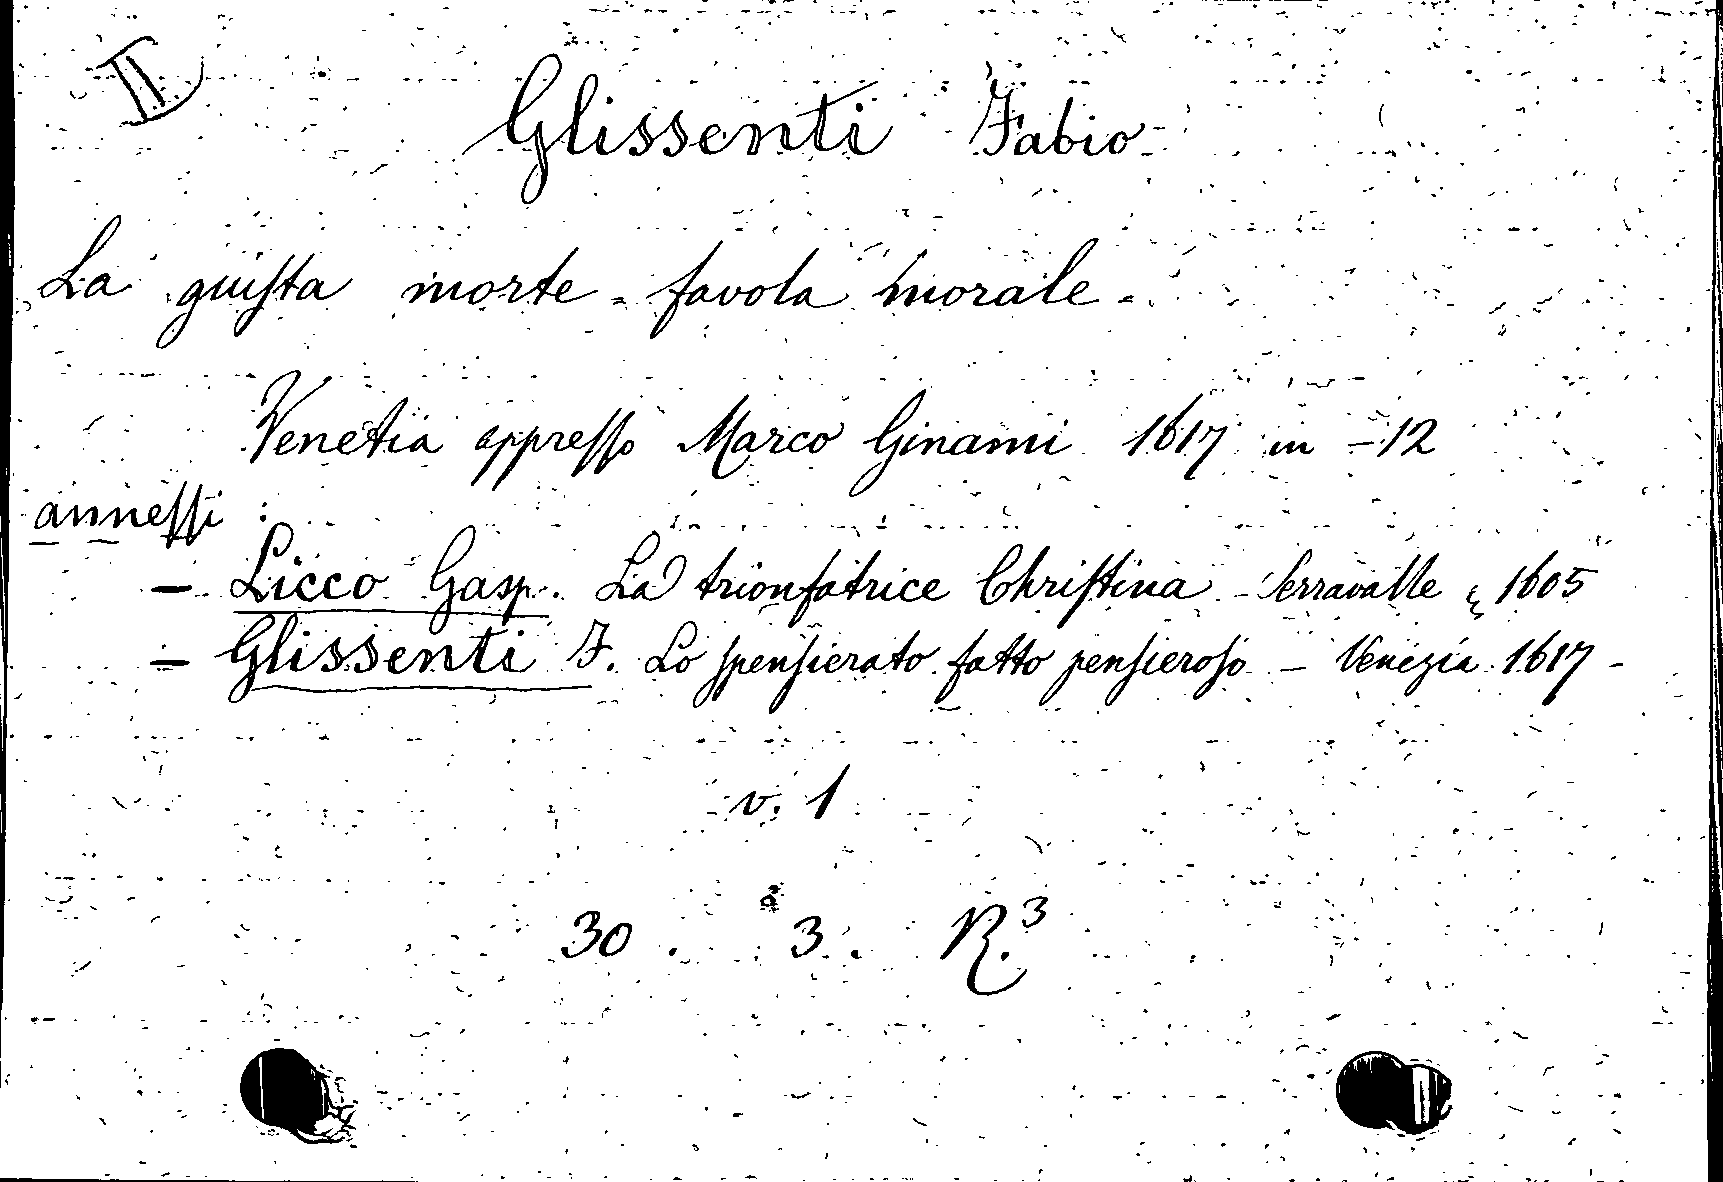 II
Glissenti Fabio
La giusta morte - favola morale -
Venetia appresso Marco Ginami 1617 in -12
annessi :
- Licco Gasp. La trionfatrice Christina - Serravalle 1605
- Glissenti F. Lo spensierato fatto pensieroso - Venezia 1617 -
v. 1
30 . 3 . R.3